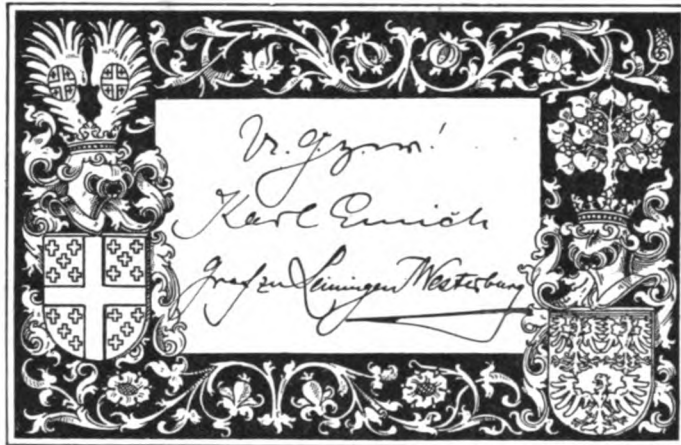 Karl Emich
Graf zu Leiningen Westerburg